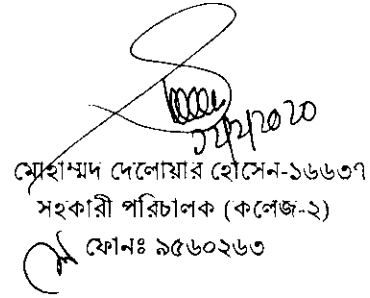 মোহাম্মদ দেলোয়ার হোসেন-১৬৬৩৭
সহকারী পরিচালক (কলেজ-২)
ফোনঃ ৯৫৬০২৬৩